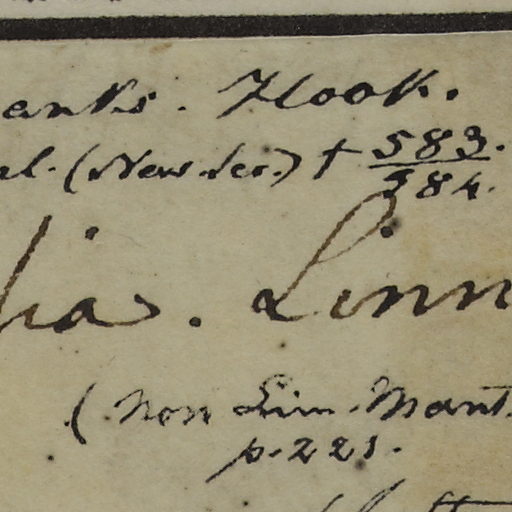 anks. Hook.
el. (New Ser.) t 583.
384.
lia. Linn
(non Linn. Mant.
p. 221.